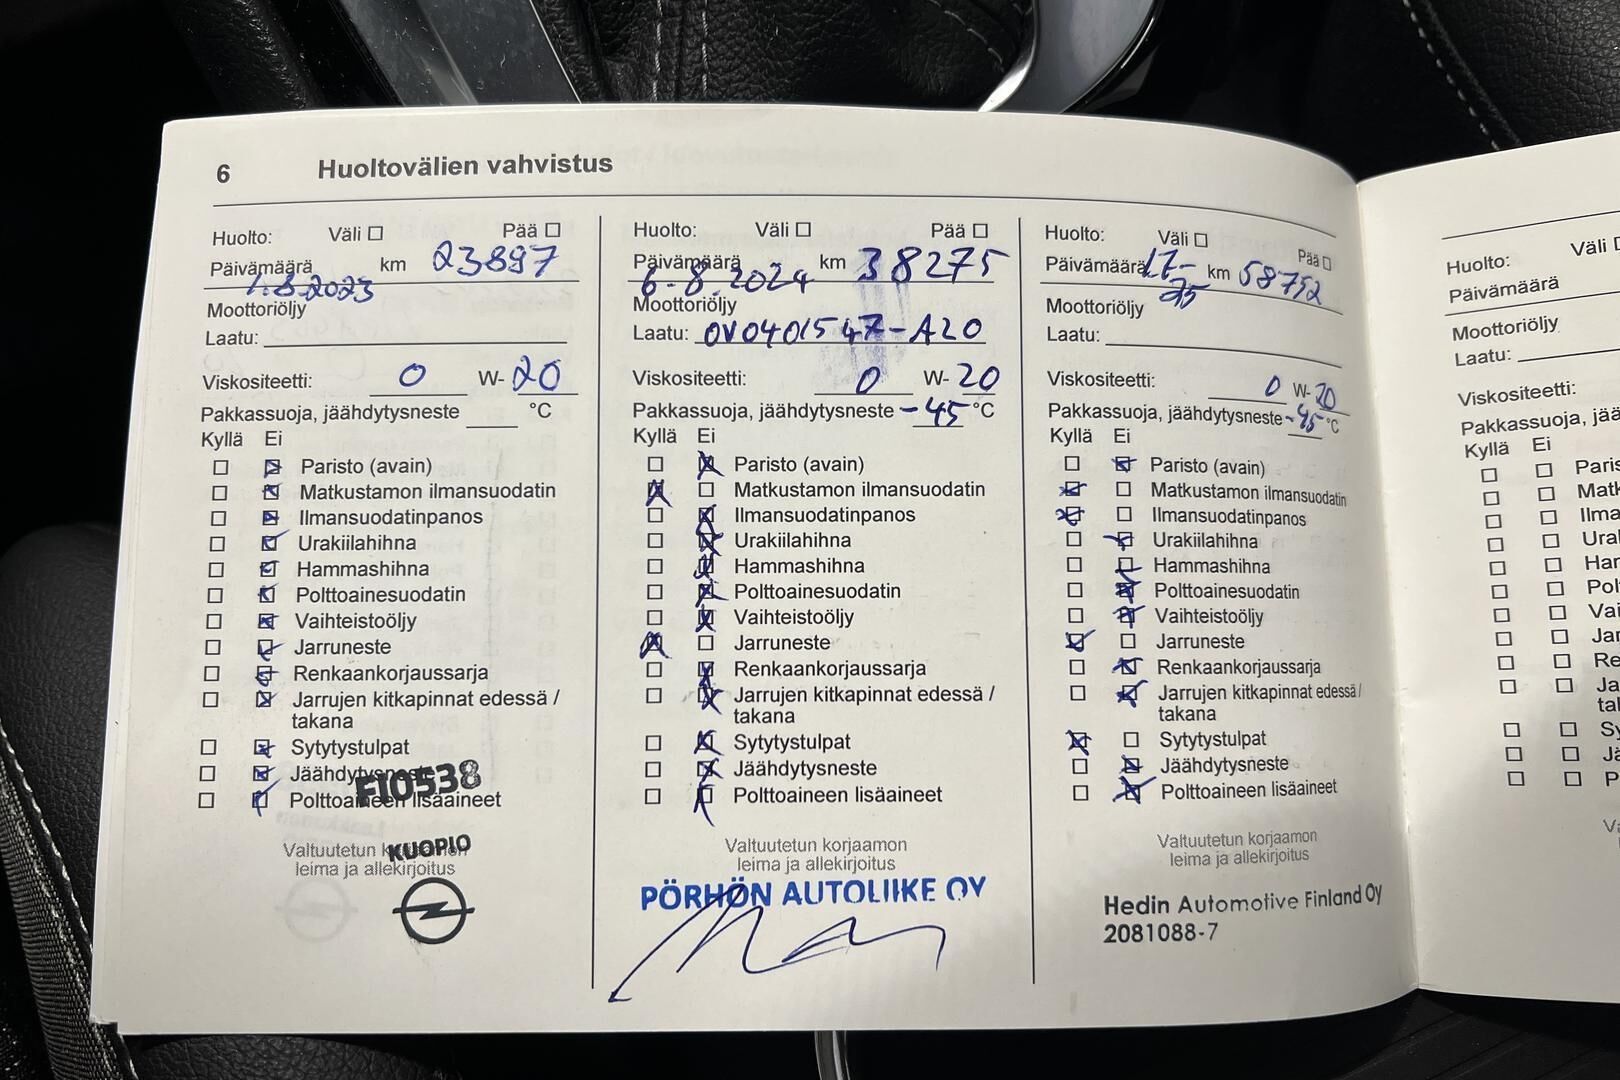 6 Huoltovälien vahvistus
Huolto: Väli ☐ Pää ☐
Päivämäärä km 23897
1.8.2023
Moottoriöljy
Laatu:
Viskositeetti: 0 W- 20
Pakkassuoja, jäähdytysneste °C
Kyllä Ei
Paristo (avain)
Matkustamon ilmansuodatin
Ilmansuodatinpanos
Urakiilahihna
Hammashihna
Polttoainesuodatin
Vaihteistoöljy
Jarruneste
Renkaankorjaussarja
Jarrujen kitkapinnat edessä /
takana
Sytytystulpat
Jäähdytysneste
FI0538
Polttoaineen lisäaineet
Valtuutetun korjaamon
KUOPIO
leima ja allekirjoitus
Huolto: Väli ☐ Pää ☐
Päivämäärä km 38275
6.8.2024
Moottoriöljy
Laatu: OV0401547-A20
Viskositeetti: 0 W- 20
Pakkassuoja, jäähdytysneste -45 °C
Kyllä Ei
Paristo (avain)
Matkustamon ilmansuodatin
Ilmansuodatinpanos
Urakiilahihna
Hammashihna
Polttoainesuodatin
Vaihteistoöljy
Jarruneste
Renkaankorjaussarja
Jarrujen kitkapinnat edessä /
takana
Sytytystulpat
Jäähdytysneste
Polttoaineen lisäaineet
Valtuutetun korjaamon
leima ja allekirjoitus
PÖRHÖN AUTOLIIKE OY
Huolto: Väli ☐ Pää ☐
Päivämäärä km 58752
Moottoriöljy
Laatu:
Viskositeetti: 0 W- 20
Pakkassuoja, jäähdytysneste -45 °C
Kyllä Ei
Paristo (avain)
Matkustamon ilmansuodatin
Ilmansuodatinpanos
Urakiilahihna
Hammashihna
Polttoainesuodatin
Vaihteistoöljy
Jarruneste
Renkaankorjaussarja
Jarrujen kitkapinnat edessä /
takana
Sytytystulpat
Jäähdytysneste
Polttoaineen lisäaineet
Valtuutetun korjaamon
leima ja allekirjoitus
Hedin Automotive Finland Oy
2081088-7
Huolto: Väli
Päivämäärä
Moottoriöljy
Laatu:
Viskositeetti:
Pakkassuoja, jää
Kyllä Ei
Paris
Matk
Ilma
Ural
Har
Pol
Vai
Jar
Re
Ja
tal
Sy
Jä
P